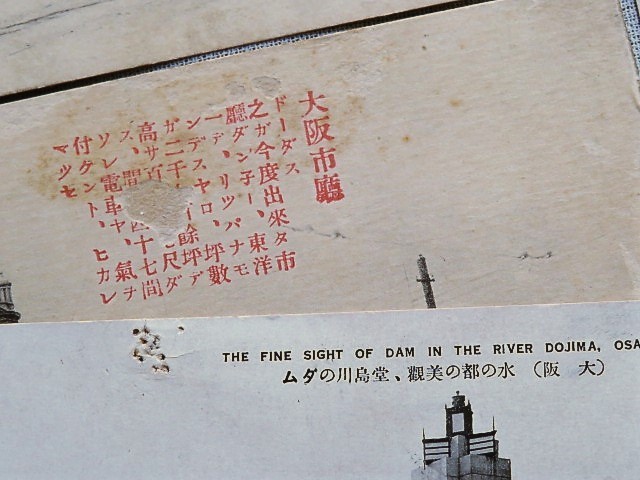 大阪市廳
ドーダス
之ガ今度出來タ市
廳ダン子ー、東洋
一デ、リツパナモ
ンデスヤロ、坪數
ガ二千餘坪デ
高サ百尺ダ
ス、間四十七間
ソレ電車ヤ、氣ヲ
付クント、ヒカレ
マツセ
THE FINE SIGHT OF DAM IN THE RIVER DOJIMA, OSA
（大阪）水の都の美觀、堂島川のダム